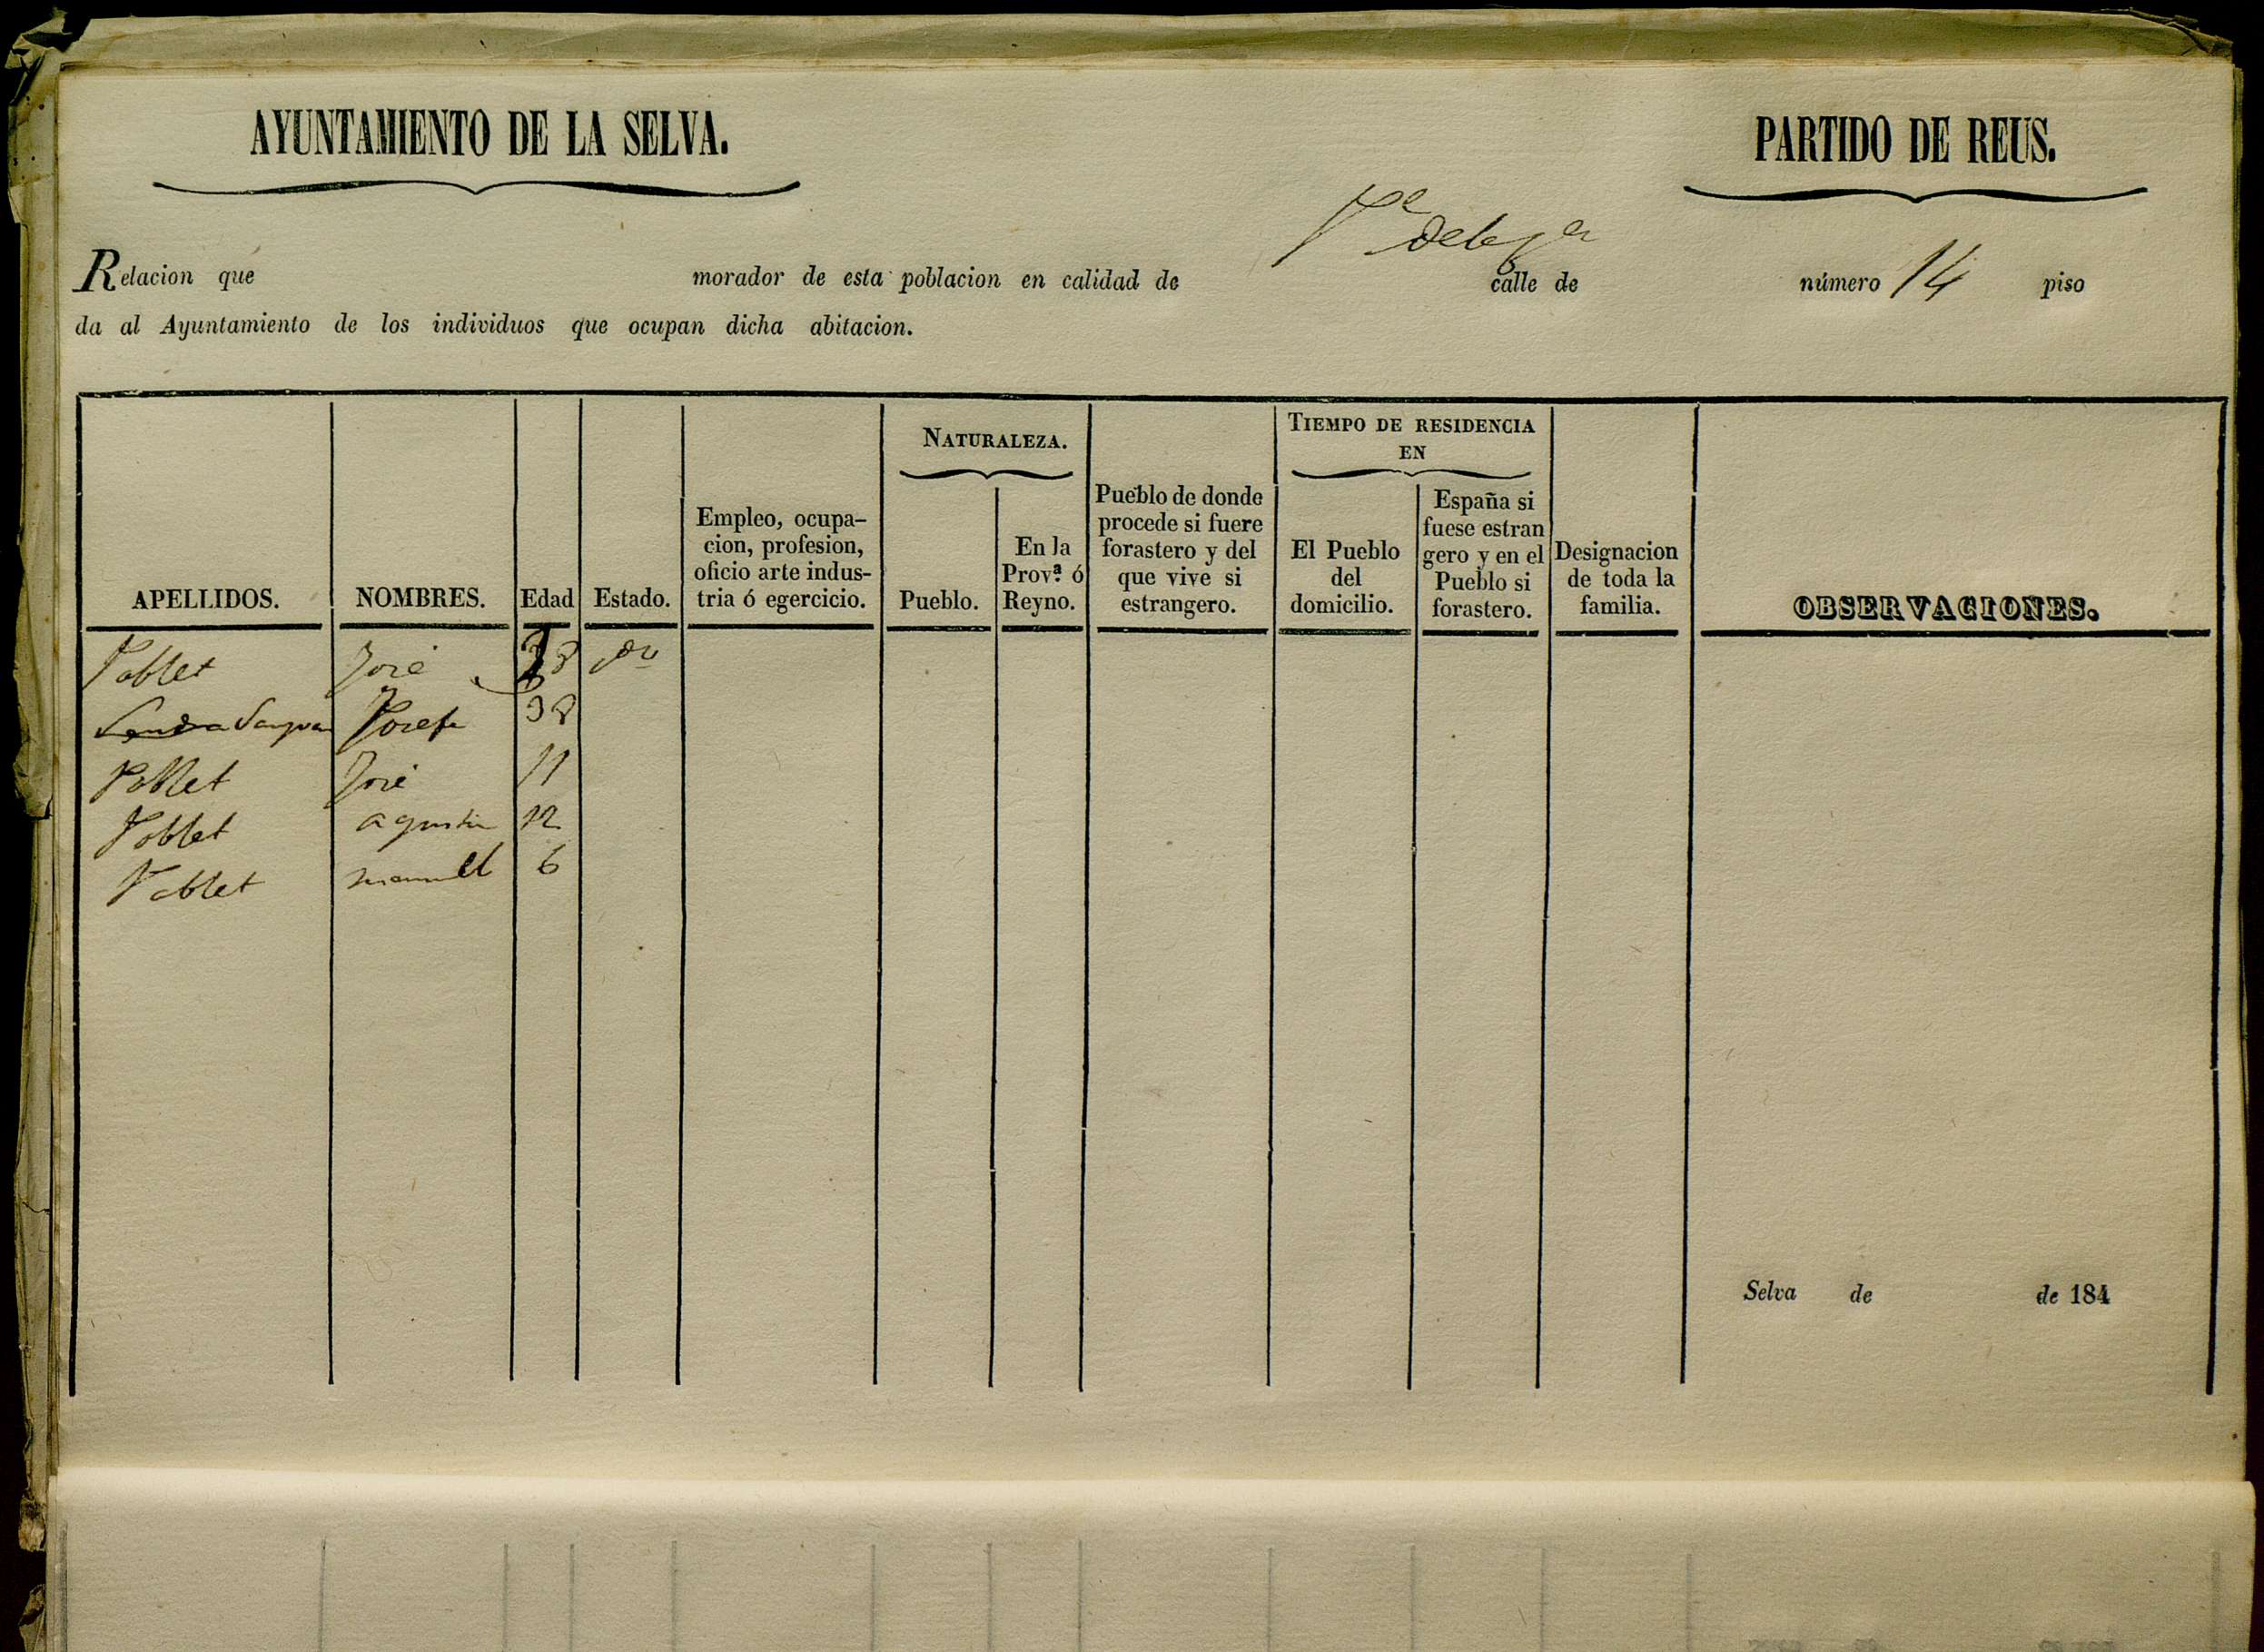 AYUNTAMIENTO DE LA SELVA.
PARTIDO DE REUS.
Relacion que morador de esta poblacion en calidad de calle de número 14 piso
da al Ayuntamiento de los individuos que ocupan dicha abitacion.
APELLIDOS.
NOMBRES.
Edad
Estado.
Empleo, ocupa-
cion, profesion,
oficio arte indus-
tria ó egercicio.
NATURALEZA.
Pueblo.
En la
Prov.ª ó
Reyno.
Pueblo de donde
procede si fuere
forastero y del
que vive si
estrangero.
TIEMPO DE RESIDENCIA
EN
El Pueblo
del
domicilio.
España si
fuese estran
gero y en el
Pueblo si
forastero.
Designacion
de toda la
familia.
OBSERVACIONES.
Poblet José 38
Josefa 38
Poblet José 11
Poblet agustin 12
Poblet manuel 6
Selva de de 184